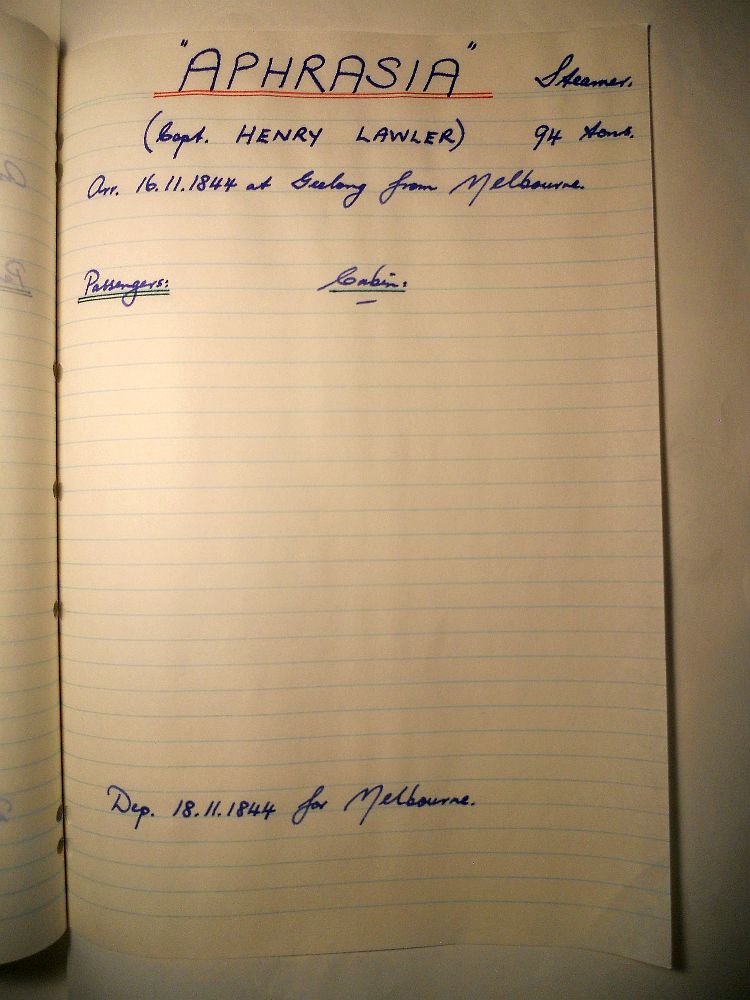 "APHRASIA" Steamer.
(Capt. HENRY LAWLER) 94 tons.
Arr. 16.11.1844 at Geelong from Melbourne.
Passengers: Cabin:
Dep. 18.11.1844 for Melbourne.